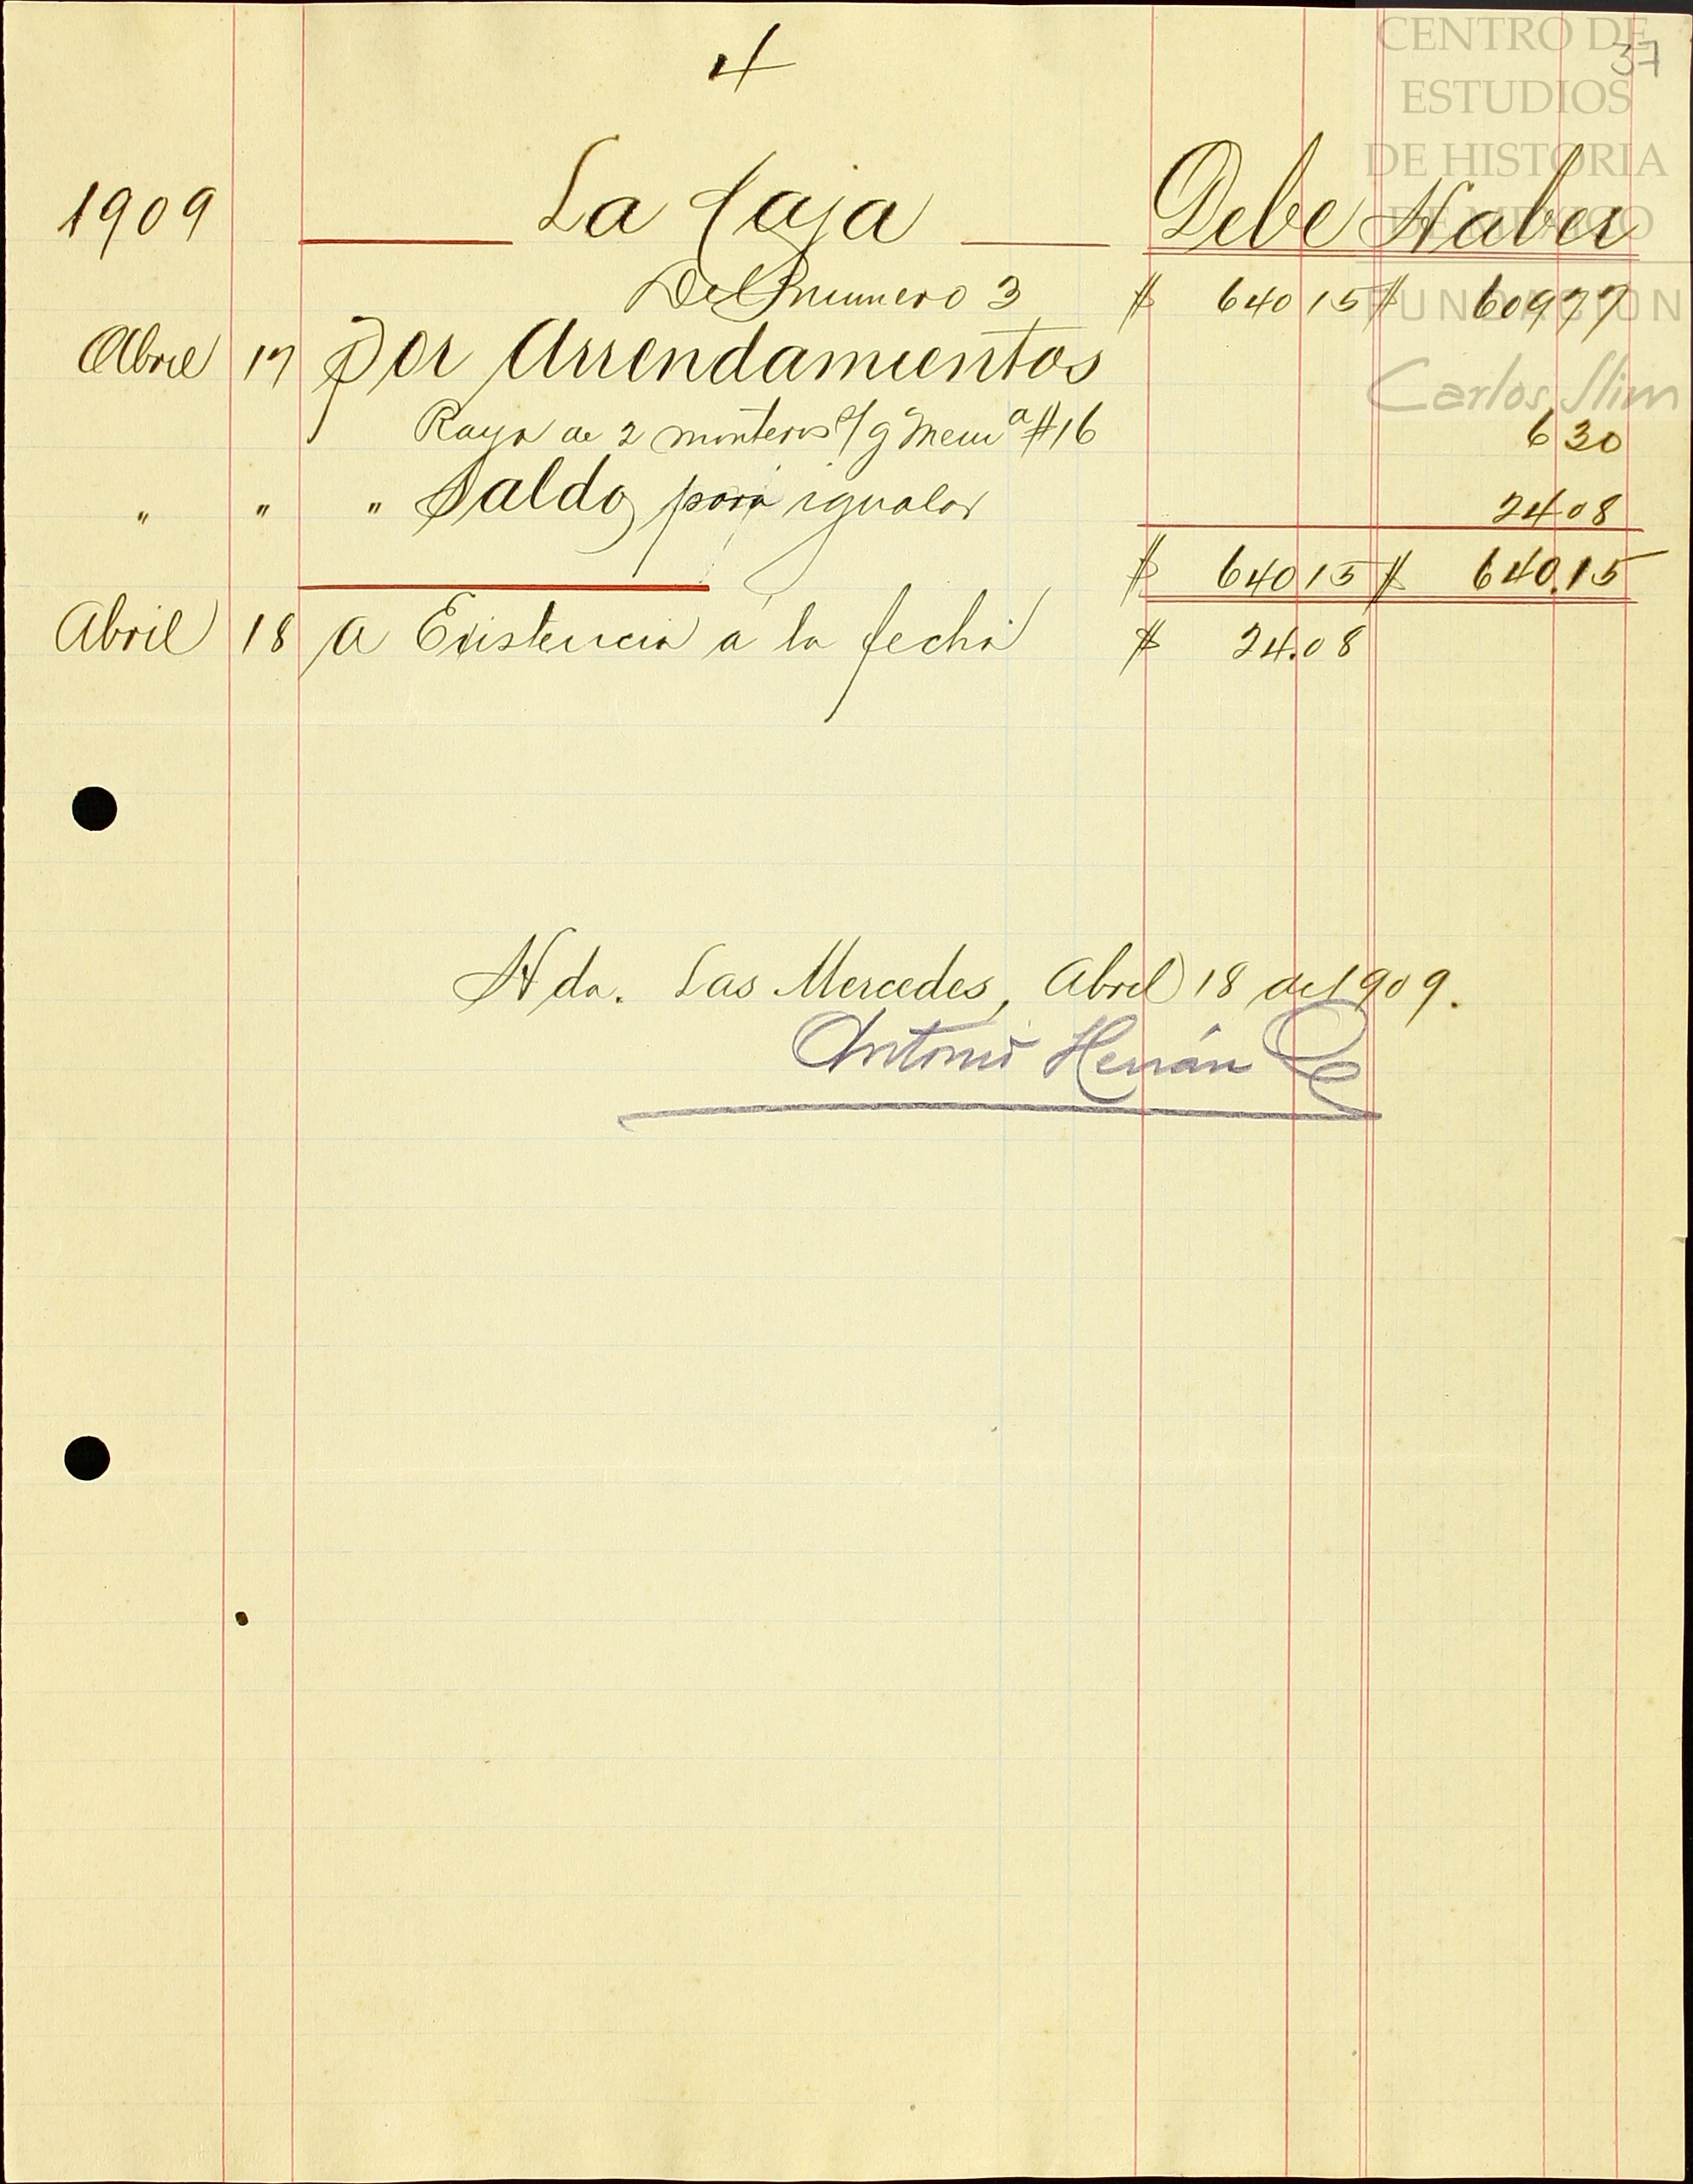 4
37
CENTRO DE
ESTUDIOS
DE HISTORIA
DE MÉXICO
FUNDACIÓN
Carlos Slim
1909 La Caja Debe Haber
Del numero 3 $ 640 15 $ 609 77
Abril 17 Por Arrendamientos
Raya de 2 monteros s/g Mem a #16 6 30
" " " Saldo para igualar 24 08
$ 640 15 $ 640.15
Abril 18 A Existencia á la fecha $ 24.08
Hda. Las Mercedes, Abril 18 de 1909.
Antonio Herrán